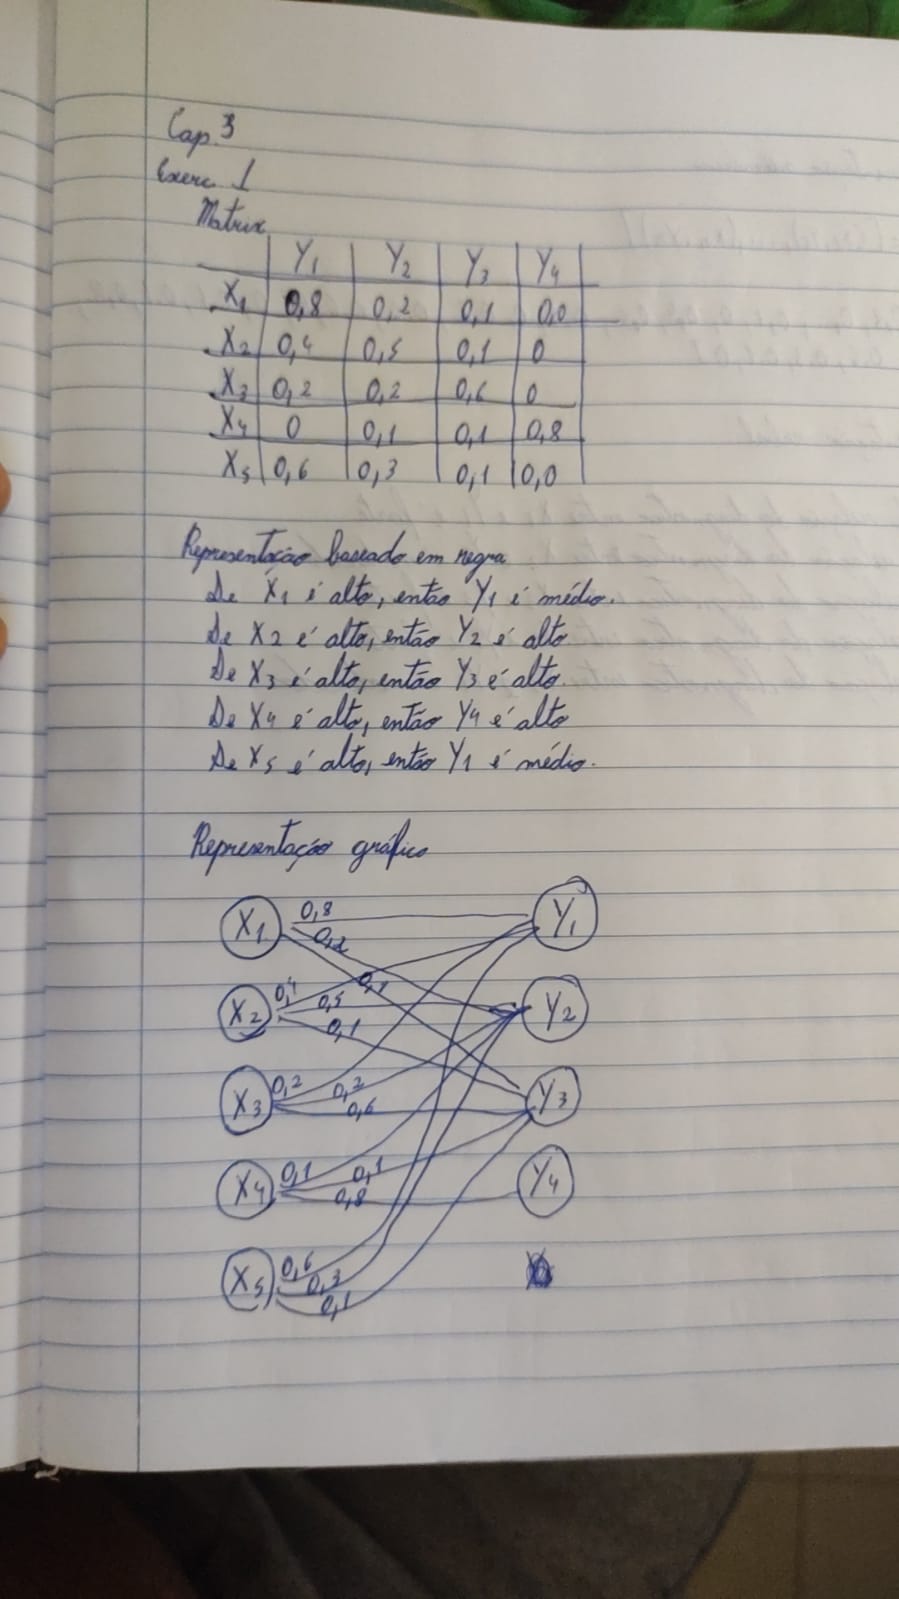 Cap. 3
Exerc. 1
Matrix
Y1 Y2 Y3 Y4
X1 0,8 0,2 0,1 0,0
X2 0,4 0,5 0,1 0
X3 0,2 0,2 0,6 0
X4 0 0,1 0,1 0,8
X5 0,6 0,3 0,1 0,0
Representação baseado em regra
Se X1 é alto, então Y1 é médio.
Se X2 é alto, então Y2 é alto
Se X3 é alto, então Y3 é alto.
Se X4 é alto, então Y4 é alto
Se X5 é alto, então Y1 é médio.
Representação gráfico
X1 0,8 Y1
0,2
0,1
X2 0,4 0,5 Y2
0,1
X3 0,2 0,2 Y3
0,6
X4 0,1 0,1 Y4
0,8
X5 0,6 0,3
0,1